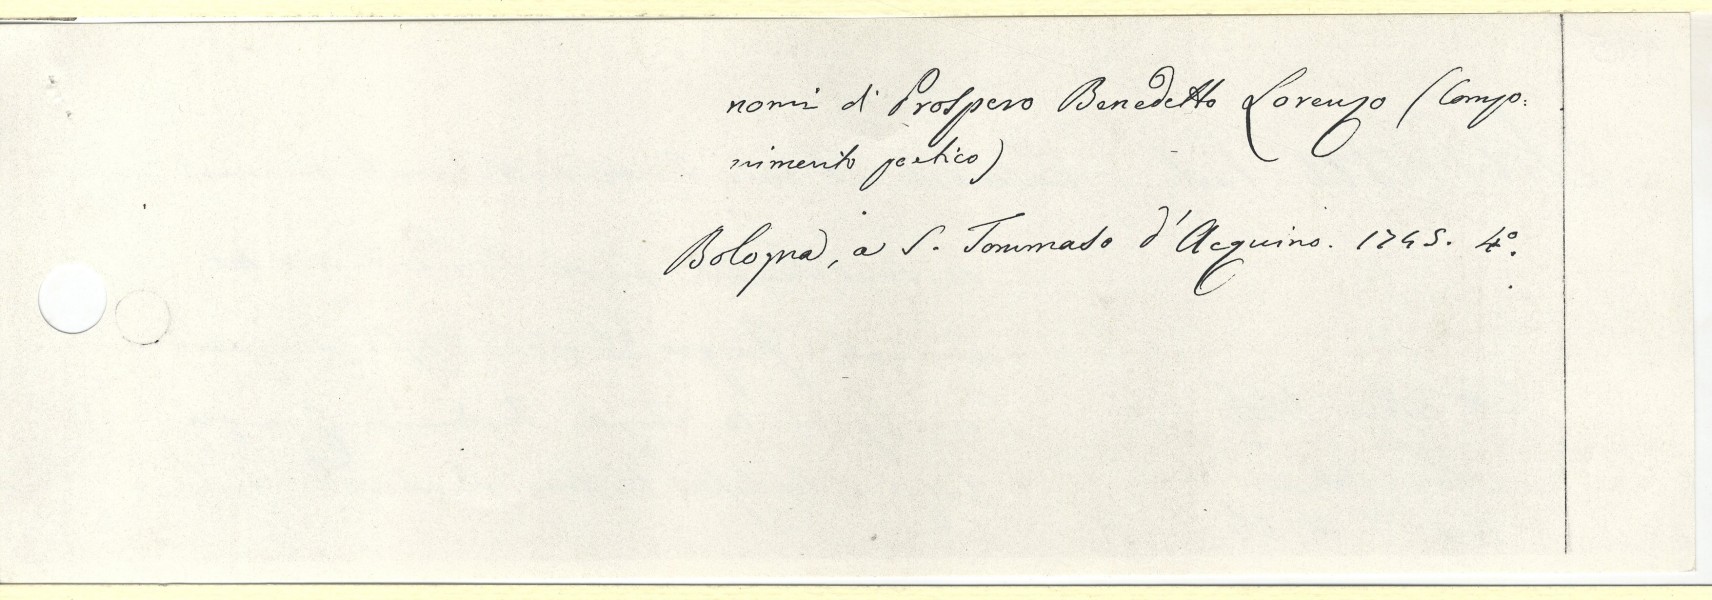 nomi di Prospero Benedetto Lorenzo (Compo:
nimento poetico)
Bologna, a S. Tommaso d'Acquino. 1745. 4º.